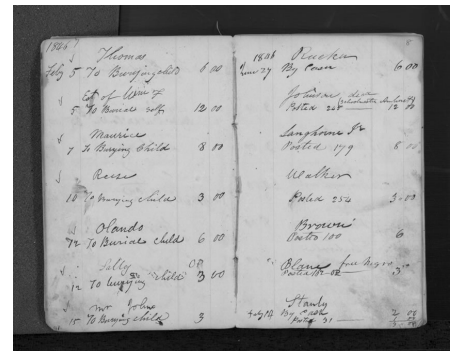 1846
Thomas
Feby 5 To Burying child 6 00
Est of Wm
5 To Burial self 12 00
Maurice
7 To Burying Child 8 00
Reese
10 To burying child 3 00
Olando
12 To Burial child 6 00
Sally
12 To burying child 3 00
Mr John
15 To Burying child 3
8
1846 Rucker
27 By Cash 6 00
Johnson
Posted 12 00
Langhorne Jr
Posted 179 8 00
Walker
Posted 254 3 00
Brown
Posted 100 6
Blane free Negro
Posted
Stanly
Feby 14 By Cash 2 00
Posted 31